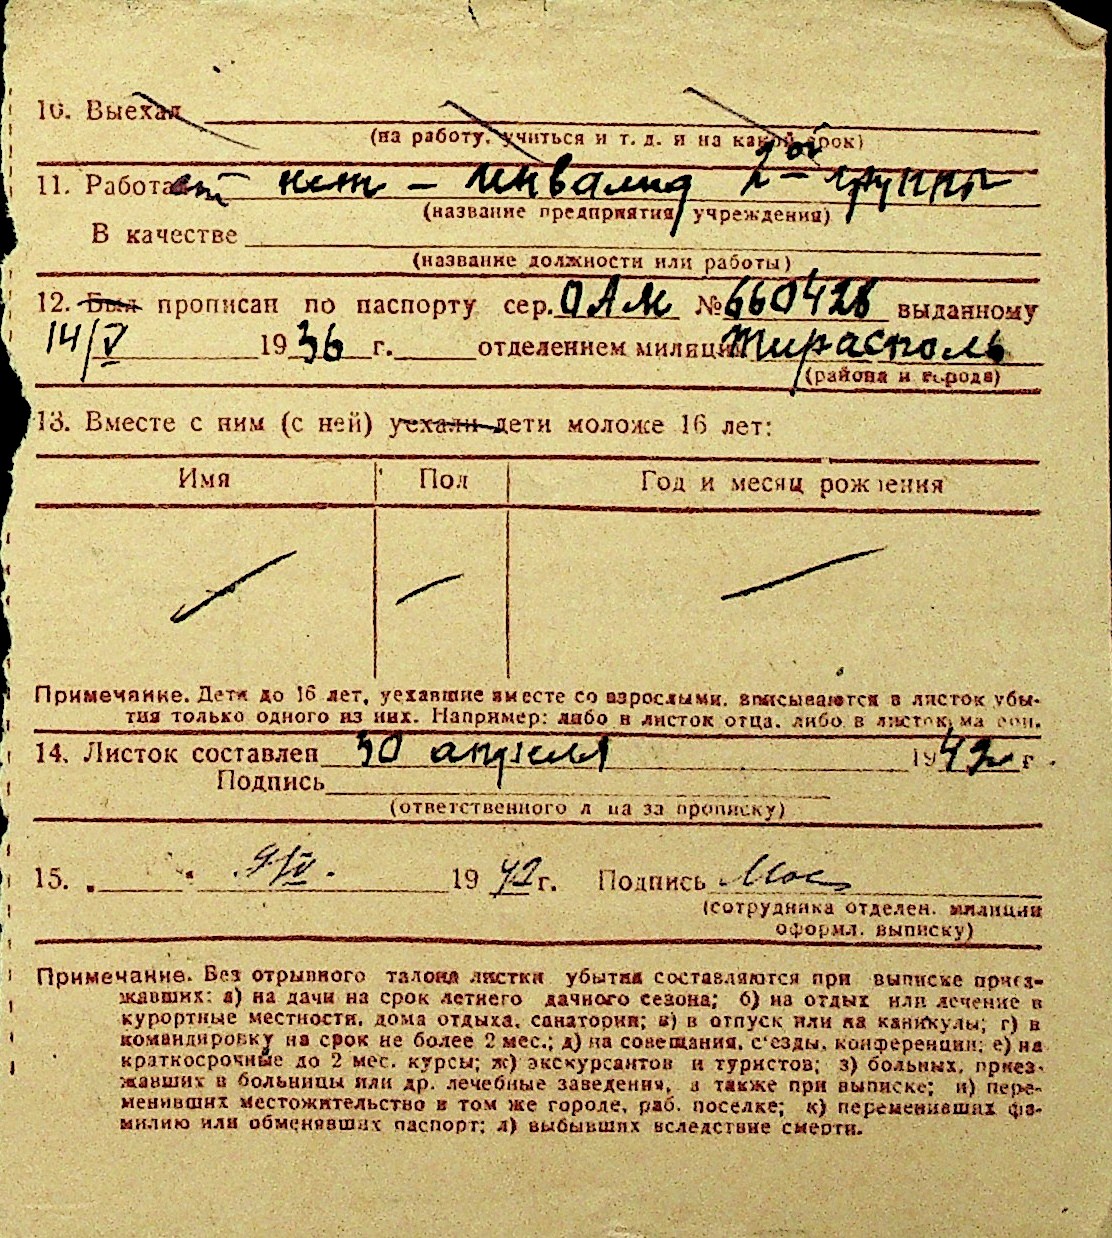 10. Выехал
(на работу, учиться и т. д. и на какой срок)
11. Работает нет - инвалид 2-ой группы
(название предприятия, учреждения)
В качестве
(название должности или работы)
12. Был прописан по паспорту сер. ОАМ № 660428 выданному
14/V 1936 г. отделением милиции Тирасполь
(района и города)
13. Вместе с ним (с ней) уехали дети моложе 16 лет:
Имя Пол Год и месяц рождения
Примечание. Дети до 16 лет, уехавшие вместе со взрослыми, вписываются в листок убы-
тия только одного из них. Например: либо в листок отца, либо в листок матери.
14. Листок составлен 30 апреля 1942 г.
Подпись
(ответственного лица за прописку)
15. 1942 г. Подпись
(сотрудника отделен. милиции
оформл. выписку)
Примечание. Без отрывного талона листки убытия составляются при выписке приез-
жавших: а) на дачи на срок летнего дачного сезона; б) на отдых или лечение в
курортные местности, дома отдыха, санатории; в) в отпуск или на каникулы; г) в
командировку на срок не более 2 мес.; д) на совещания, с'езды, конференции; е) на
краткосрочные до 2 мес. курсы; ж) экскурсантов и туристов; з) больных, приез-
жавших в больницы или др. лечебные заведения, а также при выписке; и) пере-
менивших местожительство в том же городе, раб. поселке; к) переменивших фа-
милию или обменявших паспорт; л) выбывших вследствие смерти.